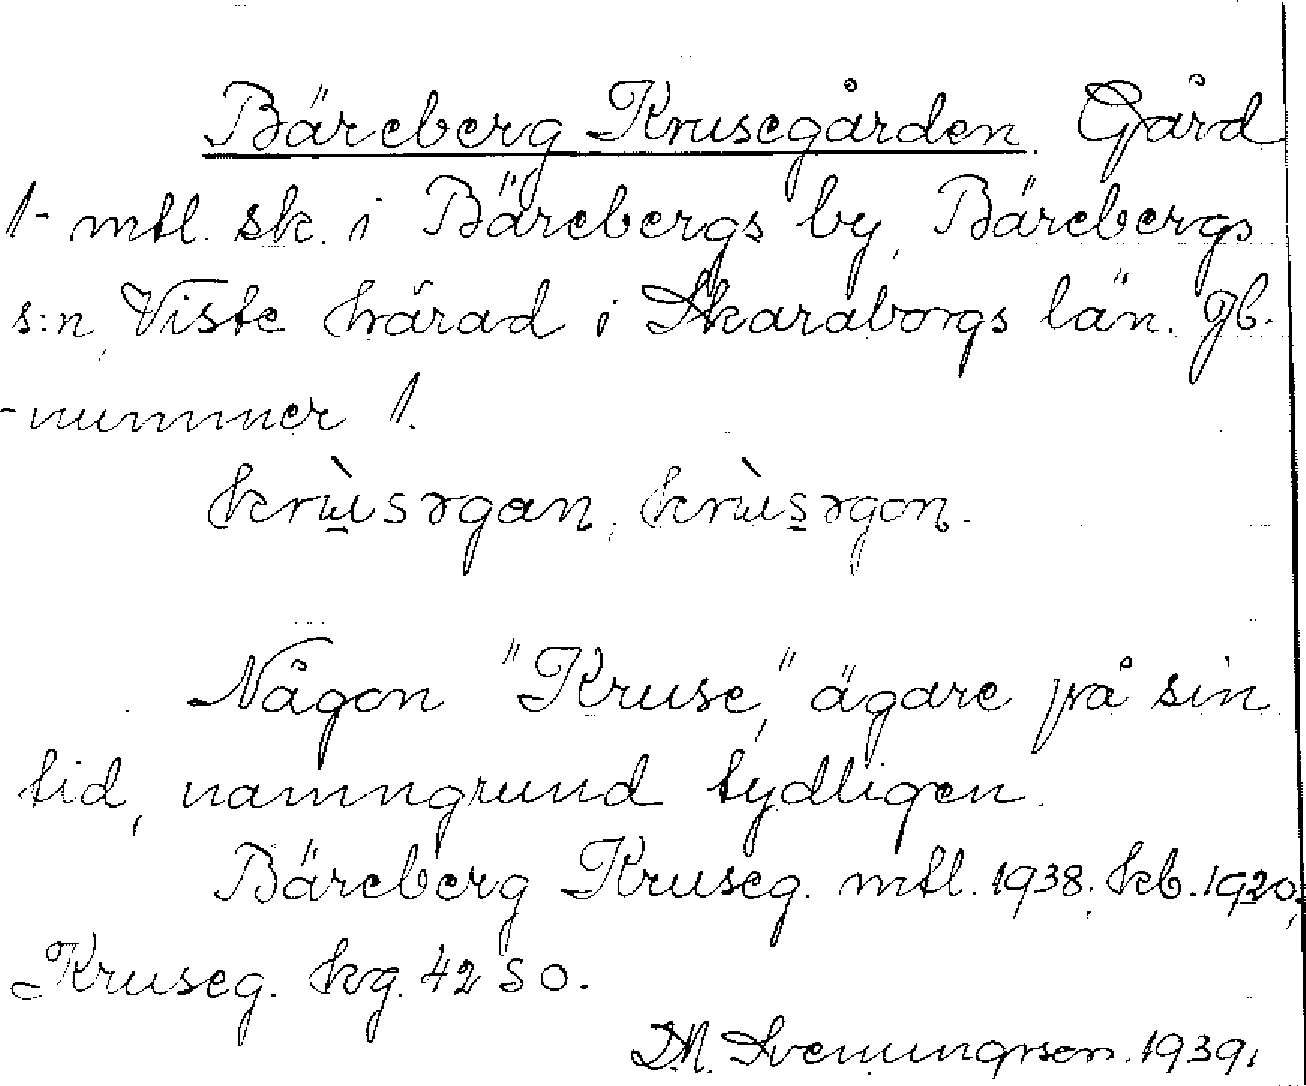 Bäreberg Krusegården. Gård
1 mtl. sk. i Bärebergs by, Bärebergs
s:n, Viste härad i Skaraborgs län. Jb.
-nummer 1.
krùsəgan, krùsəgon.
Någon "Kruse," ägare på sin
tid, namngrund tydligen.
Bäreberg Kruseg. mtl. 1938; kb. 1920;
Kruseg. kg. 42 SO.
D.N. Svenungsson. 1939.